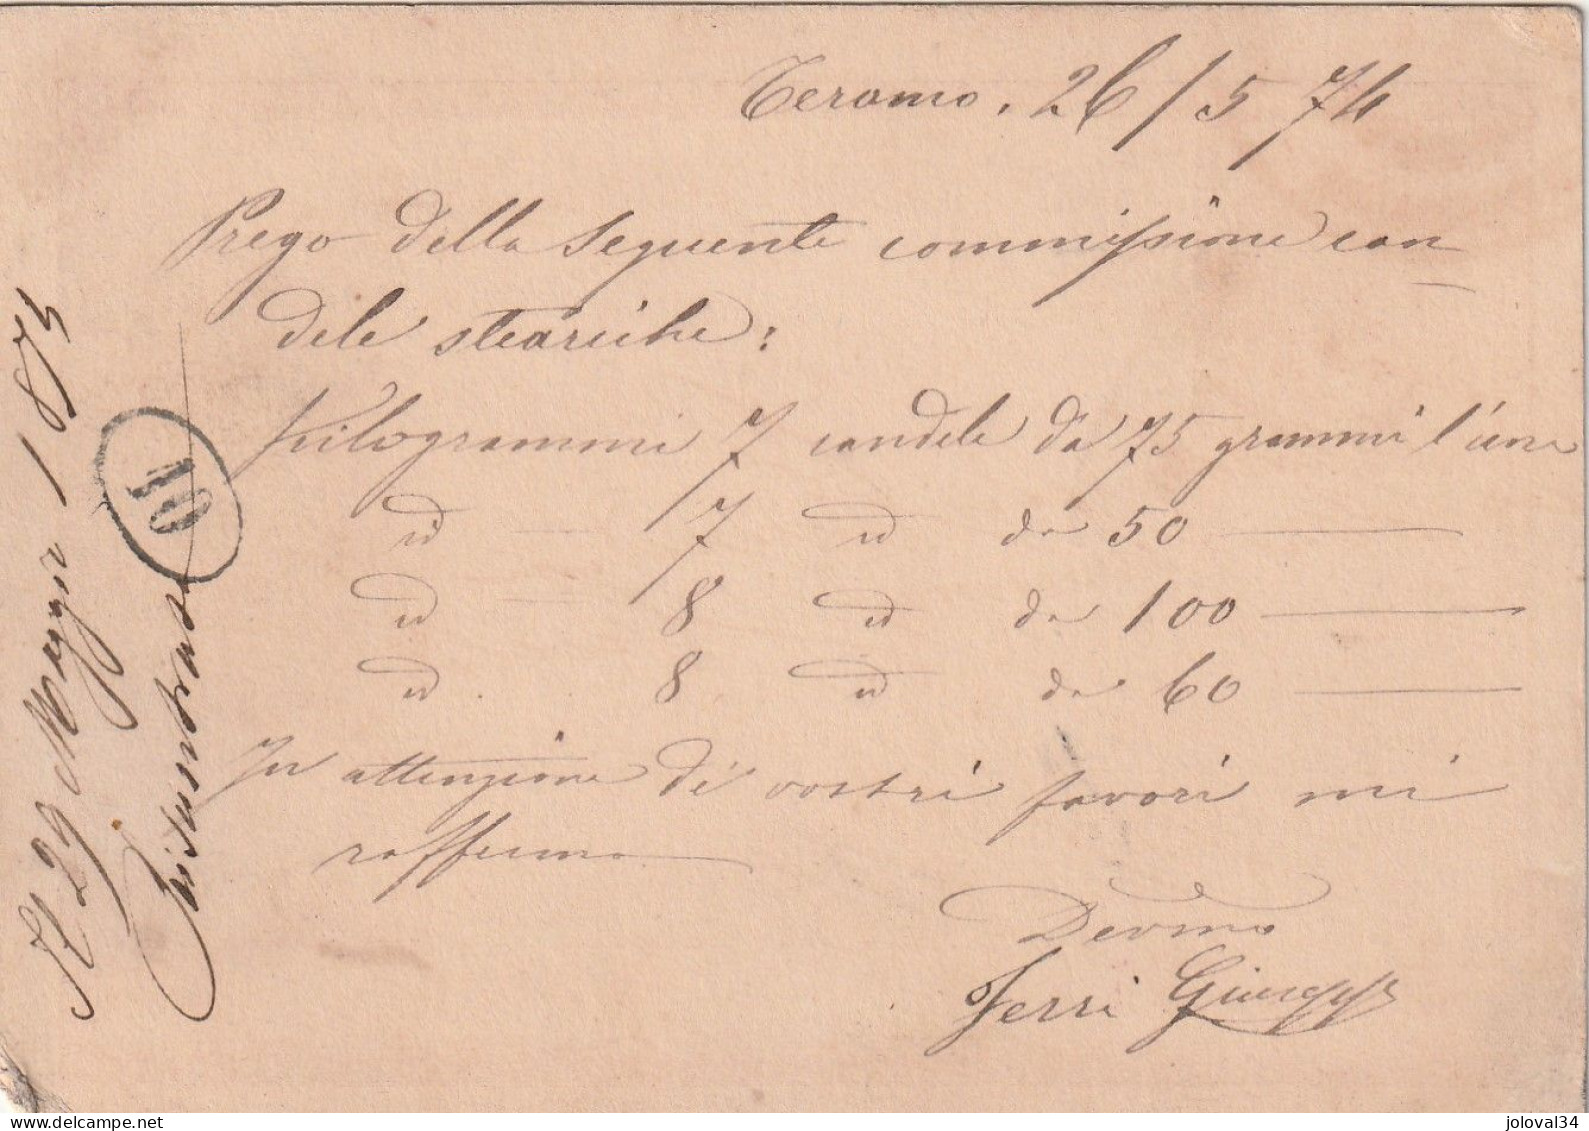 Teramo, 26/5 74
Prego della seguente commissione can
dele steariche:
Kilogrammi 7 candele da 75 grammi l'una
id — 7 id da 50 —
id — 8 id da 100 —
id . 8 id da 60 —
In attenzione di vostri favori mi
raffermo
Devmo
Ferri Giuseppe
Il 29 Maggio 1875
10
joloval34